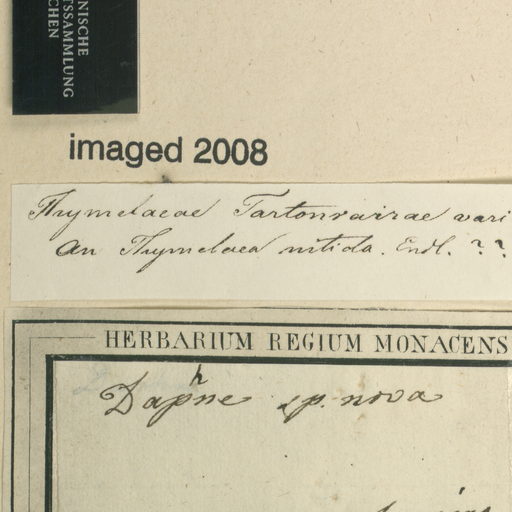 NISCHE
TSSAMMLUNG
CHEN
imaged 2008
Thymelaeae Tartonrairae vari
an Thymelaea nitida. Endl. ??
HERBARIUM REGIUM MONACENS
Daphne sp. nova